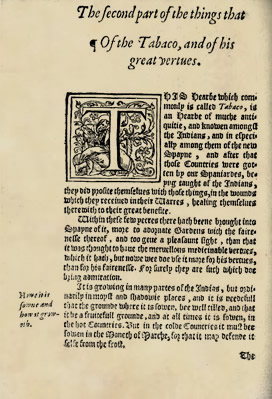 The second part of the things that
¶ Of the Tabaco, and of his
great vertues.
THIS Hearbe which com-
monly is called Tabaco, is
an Hearbe of muche anti-
quitie, and knowen amongst
the Indians, and in especi-
ally among them of the new
Spayne, and after that
those Countries were got-
ten by our Spaniardes, be-
yng taught of the Indians,
they did profite themselues with those things, in the wounds
which they receiued in their Warres, healing themselues
therewith to their great benefite.
Within these few yeres there hath beene brought into
Spayne of it, more to adornate Gardens with the faire-
nesse thereof, and too geue a pleasaunt sight, than that
it was thought to haue the meruellous medicinable vertues,
which it hath, but nowe wee doe vse it more for his vertues,
than for his fairenesse. For surely they are such which doe
bring admiration.
It is growing in many parties of the Indias, but ordi-
narily in moyst and shadowie places, and it is needefull
that the grounde where it is sowen, bee well tilled, and that
it be a fruitefull grounde, and at all times it is sowen, in
the hot Countries. But in the colde Countries it must bee
sowen in the Moneth of Marche, for that it may defende it
selfe from the frost.
Howe it is
sowne and
how it grow-
eth.
The